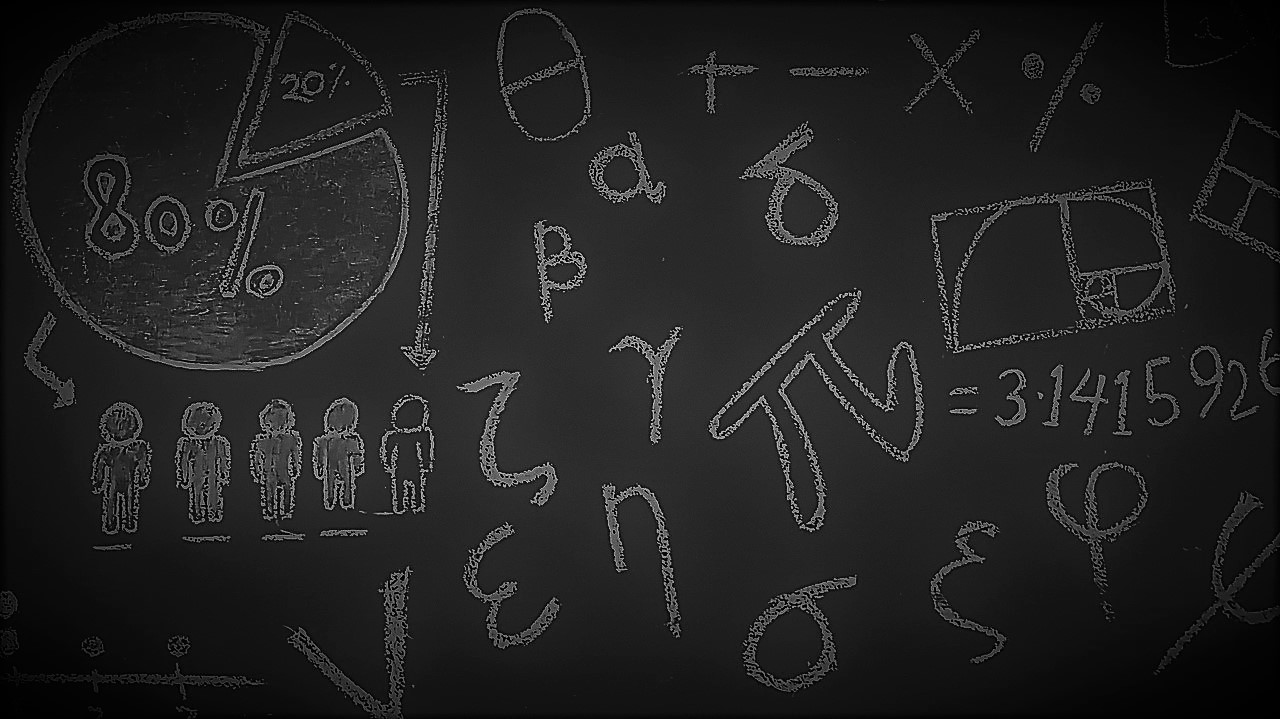 20%
80%
θ + − × %
α δ
β
γ
π = 3.1415926
ζ
η
φ
ε
ξ
ψ
σ
√